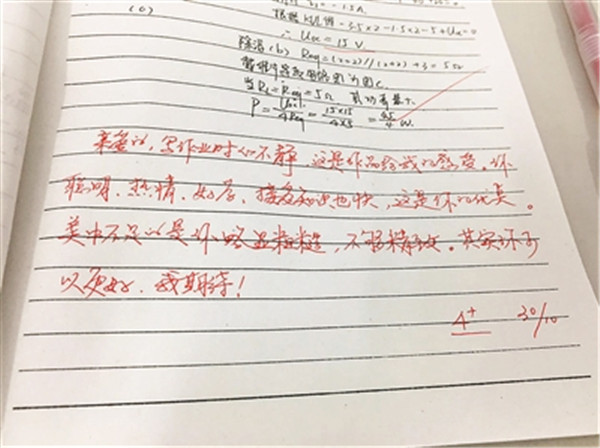 = -1.5A
根据KVL得 -3.5×2-1.5×2-5+Uoc=0
(c)
∴ Uoc = 15 V
除源(b) Req=(2+2)//(2+2)+3=5Ω
戴维宁等效电路图为图c.
当RL=Req=5Ω 其功率最大.
P=Uoc²/4Req=15×15/4×5=45/4 W.
亲爱的,写作业时心不静,这是作品给我的感受。你
聪明、热情、好学、接受知识也快,这是你的优点。
美中不足的是你略显粗糙,不够精致。其实你可
以更好,我期待!
A⁺ 30/10